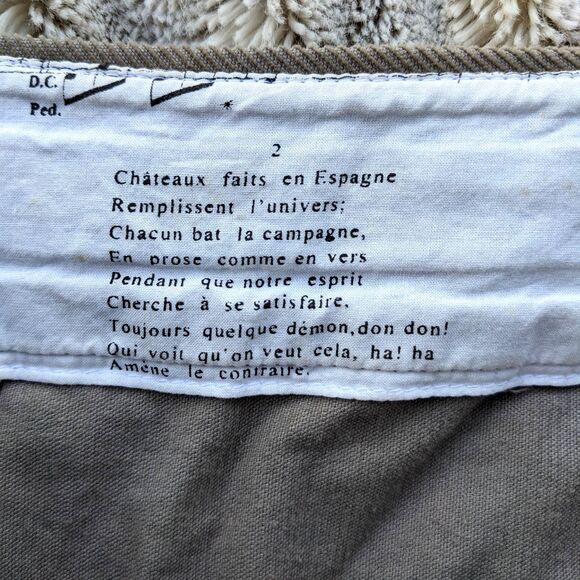 D.C.
Ped. *
2
Châteaux faits en Espagne
Remplissent l'univers;
Chacun bat la campagne,
En prose comme en vers
Pendant que notre esprit
Cherche à se satisfaire,
Toujours quelque démon, don don!
Qui voit qu'on veut cela, ha! ha
Amène le contraire.